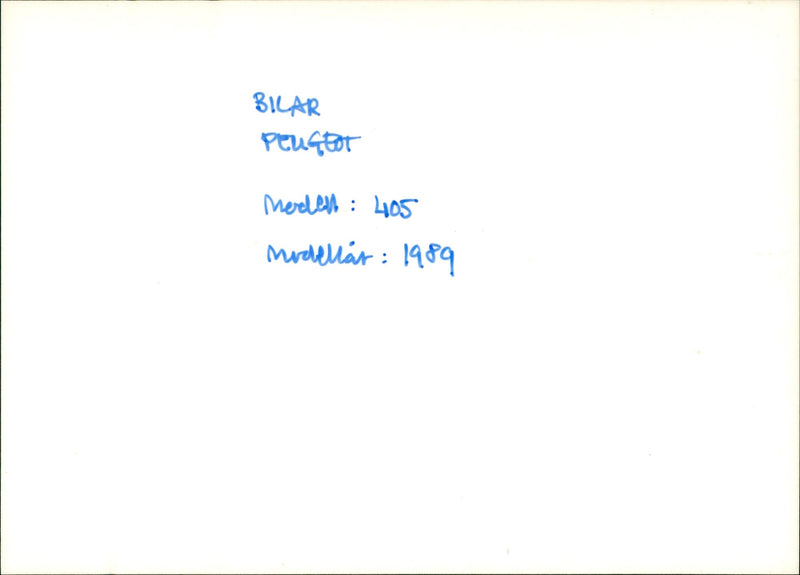 BILAR
PEUGEOT
Modell: 405
Modellår: 1989